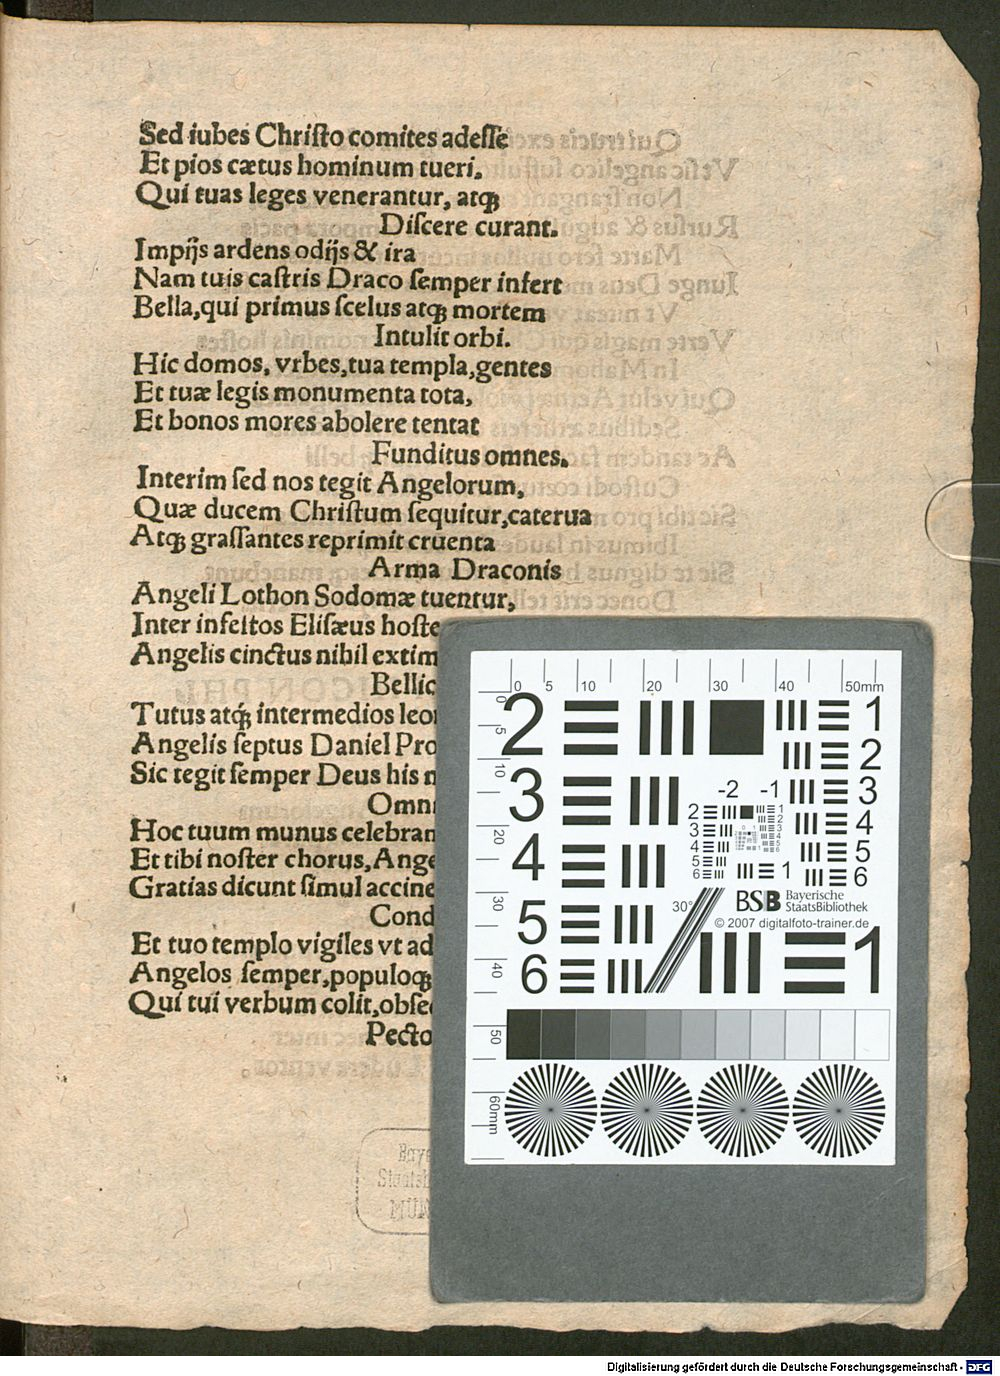 Sed iubes Christo comites adesse
Et pios cætus hominum tueri.
Qui tuas leges venerantur, atqꝫ
Discere curant.
Impijs ardens odijs & ira
Nam tuis castris Draco semper infert
Bella,qui primus scelus atqꝫ mortem
Intulit orbi.
Hic domos, vrbes,tua templa,gentes
Et tuæ legis monumenta tota,
Et bonos mores abolere tentat
Funditus omnes.
Interim sed nos tegit Angelorum,
Quæ ducem Christum sequitur,caterua
Atqꝫ grassantes reprimit cruenta
Arma Draconis
Angeli Lothon Sodomæ tuentur,
Inter infestos Elisæus hoste
Angelis cinctus nihil extim
Bellic
Tutus atqꝫ́ intermedios leo
Angelis septus Daniel Pro
Sic tegit semper Deus his
Omn
Hoc tuum munus celebran
Et tibi noster chorus,Ange
Gratias dicunt simul accine
Cond
Et tuo templo vigiles vt ad
Angelos semper,populoqꝫ
Qui tui verbum colit,obse
Pecto
0 5 10 20 30 40 50mm
0 5 10 20 30 40 50 60mm
2 1
2
3 -2 -1 3
4 4
5
6
5
6
1
30°
BSB Bayerische StaatsBibliothek
© 2007 digitalfoto-trainer.de
1
Digitalisierung gefördert durch die Deutsche Forschungsgemeinschaft - DFG